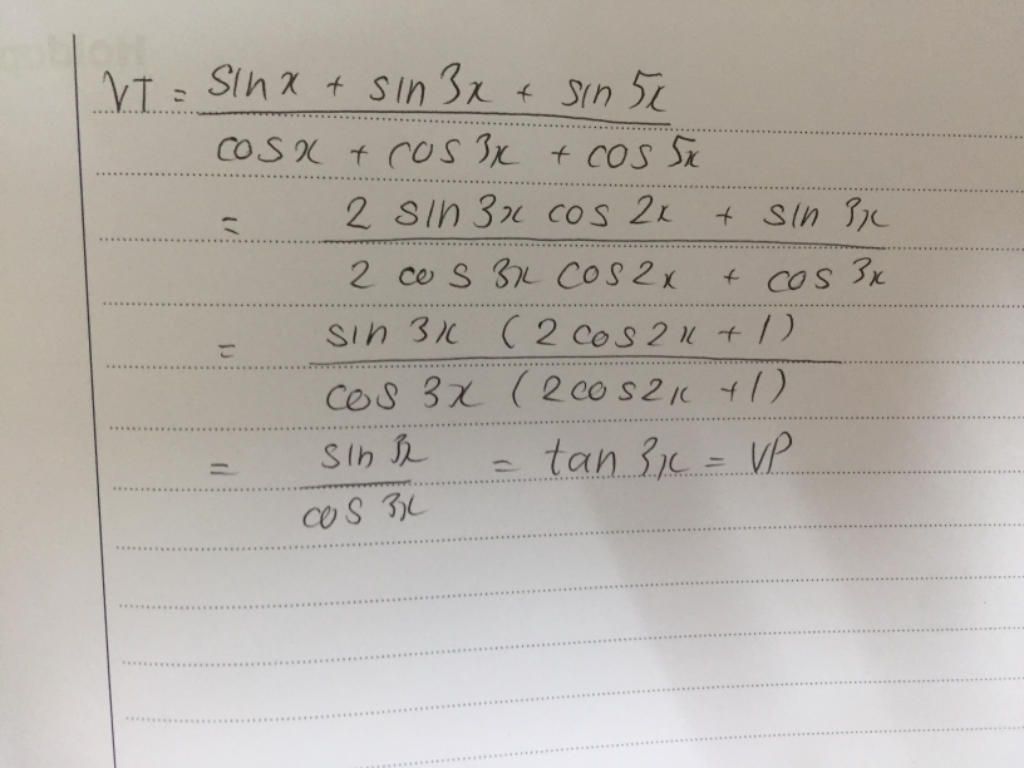 VT = sin x + sin 3x + sin 5x
cos x + cos 3x + cos 5x
= 2 sin 3x cos 2x + sin 3x
2 cos 3x cos 2x + cos 3x
= sin 3x (2 cos 2x + 1)
cos 3x (2 cos 2x + 1)
= sin 3x = tan 3x = VP
cos 3x